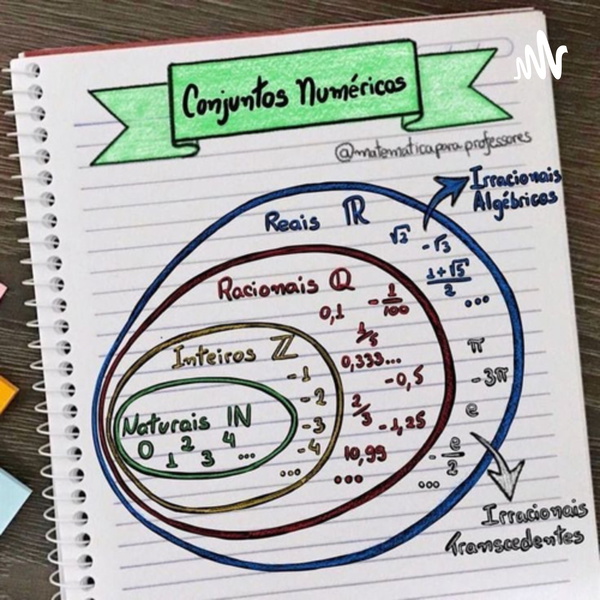 Conjuntos Numéricos
@matematicapara.professores
Irracionais
Algébricos
Reais ℝ
√2
-√3
1+√5
2
...
Racionais ℚ
0,1
-1/100
1/5
0,333...
-0,5
2/3
-1,25
10,99
...
Inteiros ℤ
-1
-2
-3
-4
...
Naturais ℕ
0 1 2 3 4 ...
π
-3π
e
-e/2
...
Irracionais
Transcedentes